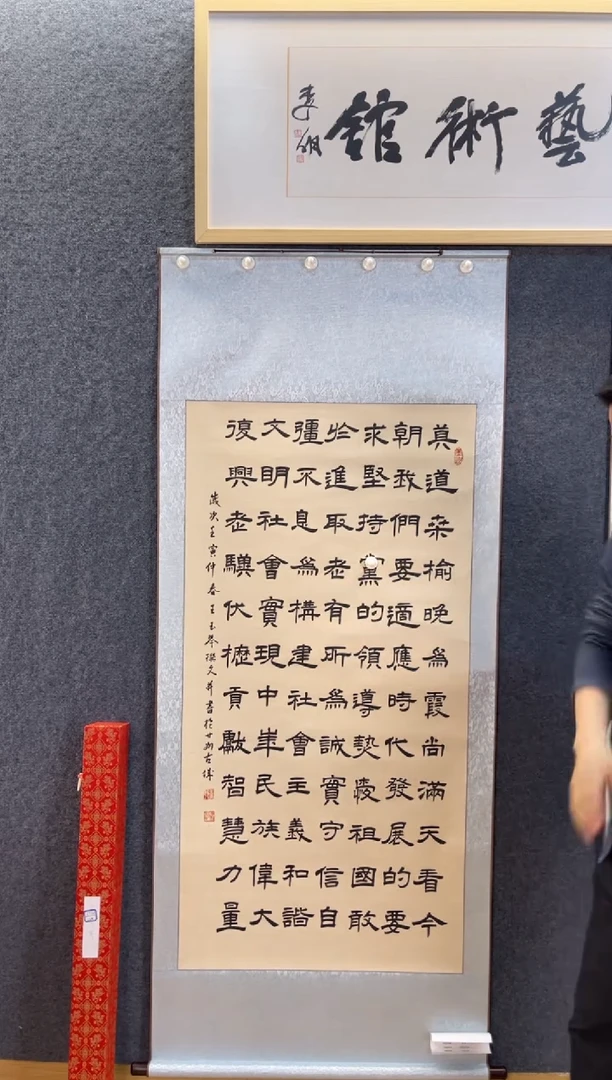 藝術館
莫道桑榆晚為霞尚滿天看今
朝我們要適應時代發展的要
求堅持黨的領導熱愛祖國敢
於進取老有所為誠實守信自
彊不息為構建社會主義和諧
文明社會實現中華民族偉大
復興老驥伏櫪貢獻智慧力量
歲次壬寅仲春王玉琴撰文并書於甘州古城